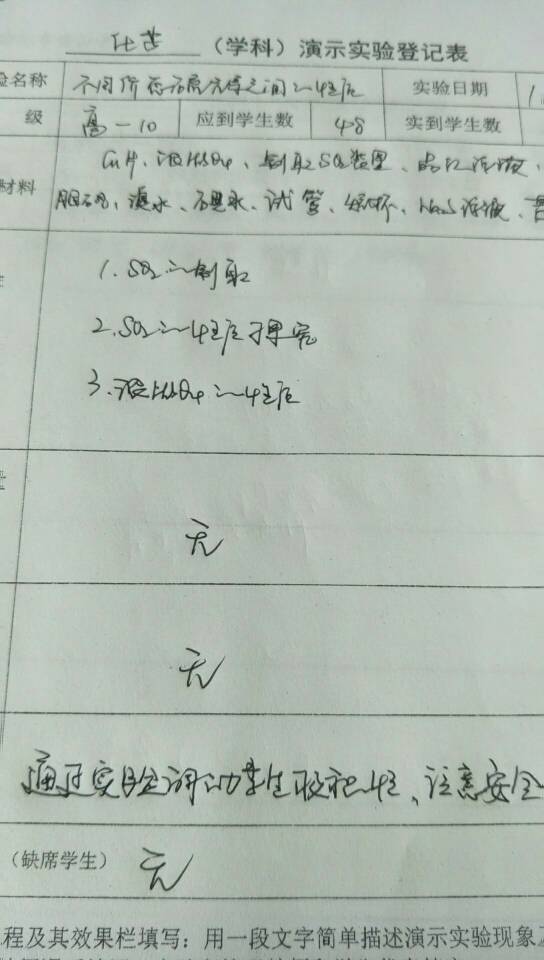 化学 （学科）演示实验登记表
验名称 不同价态硫元素之间的转化 实验日期 1
级 高一10 应到学生数 48 实到学生数
材料 Cu片、浓H₂SO₄、制取SO₂装置、品红溶液、
溴水、石蕊水、试管、烧杯、Na₂S溶液、
1.SO₂的制取
2.SO₂的性质探究
3.浓H₂SO₄的性质
无
无
通过实验调动学生积极性、注意安全
（缺席学生） 无
程及其效果栏填写：用一段文字简单描述演示实验现象及